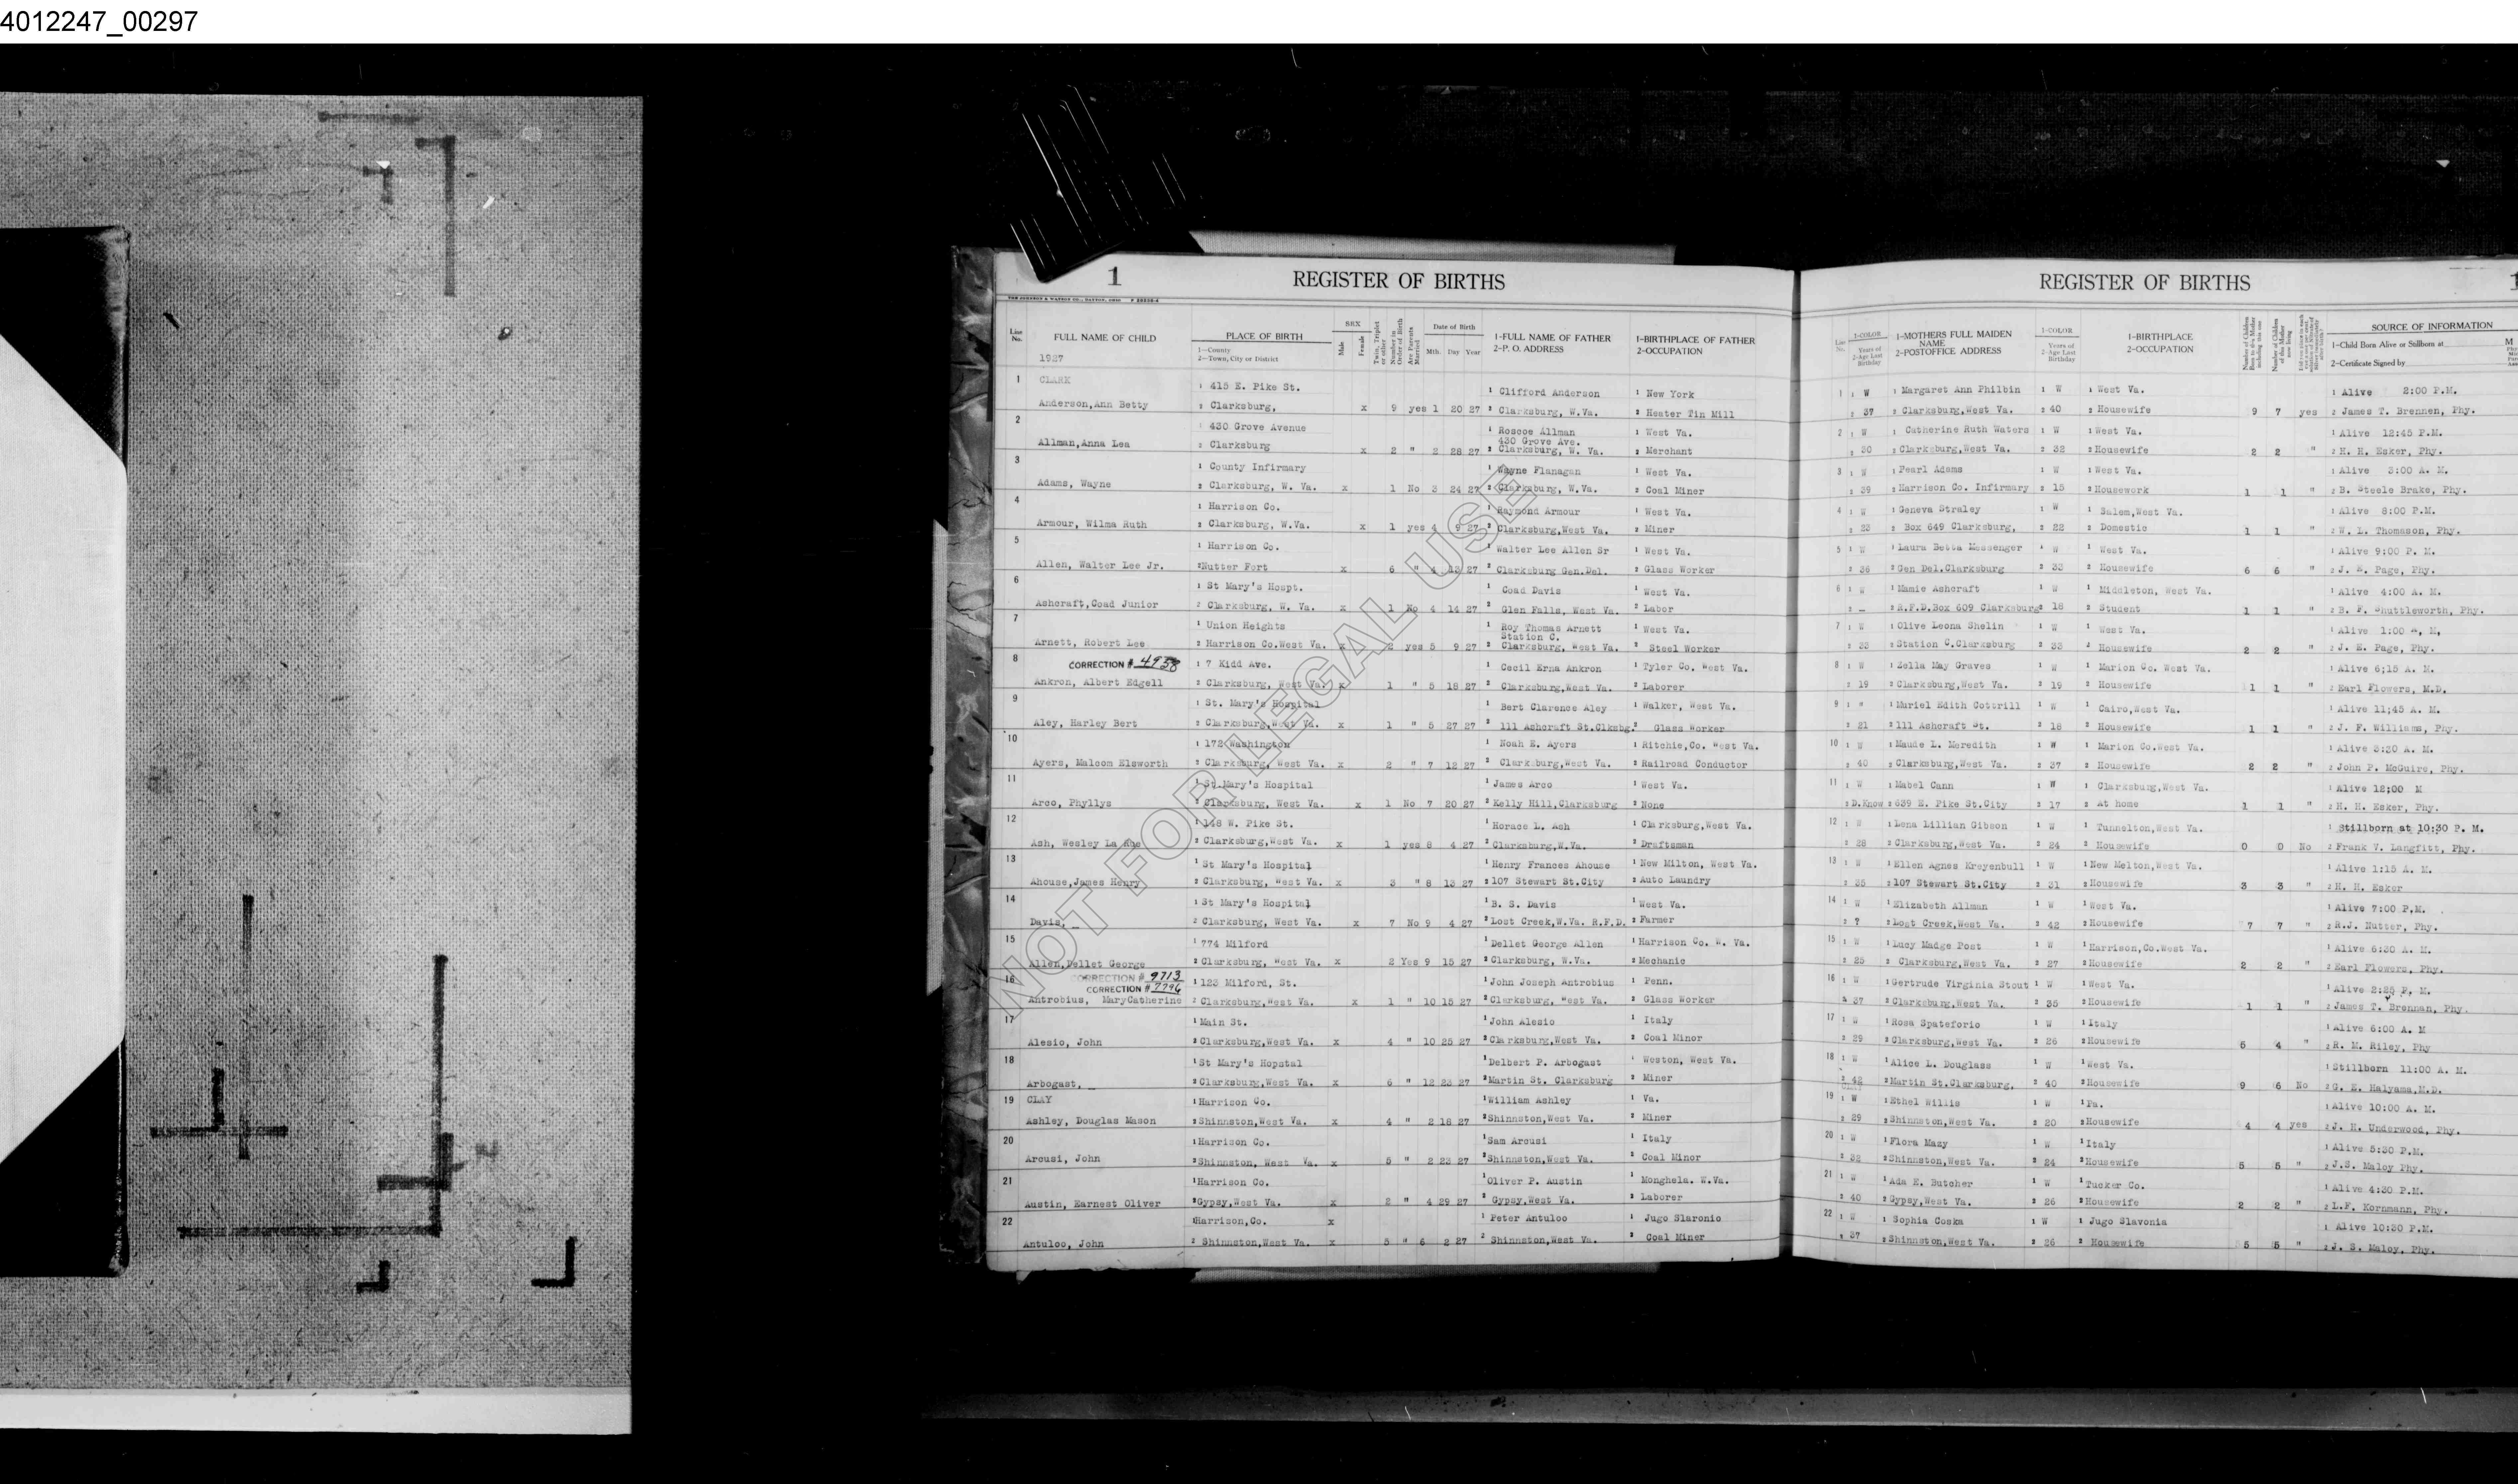 4012247_00297
1
REGISTER OF BIRTHS
Line No.
FULL NAME OF CHILD
1927
PLACE OF BIRTH
1—County
2—Town, City or District
SEX
Male
Female
Twin, Triplet or other
Number in Order of Birth
Are Parents Married
Date of Birth
Mth. Day Year
1-FULL NAME OF FATHER
2-P. O. ADDRESS
1-BIRTHPLACE OF FATHER
2-OCCUPATION
1 CLARK 1 415 E. Pike St. 1 Clifford Anderson 1 New York
Anderson,Ann Betty 2 Clarksburg, x 9 yes 1 20 27 2 Clarksburg, W.Va. 2 Heater Tin Mill
2 1 430 Grove Avenue 1 Roscoe Allman 1 West Va.
430 Grove Ave.
Allman,Anna Lea 2 Clarksburg x 2 " 2 28 27 2 Clarksburg, W. Va. 2 Merchant
3 1 County Infirmary 1 Wayne Flanagan 1 West Va.
Adams, Wayne 2 Clarksburg, W. Va. x 1 No 3 24 27 2 Clarksburg, W.Va. 2 Coal Miner
4 1 Harrison Co. 1 Raymond Armour 1 West Va.
Armour, Wilma Ruth 2 Clarksburg, W.Va. x 1 yes 4 9 27 2 Clarksburg,West Va. 2 Miner
5 1 Harrison Co. 1 Walter Lee Allen Sr 1 West Va.
Allen, Walter Lee Jr. 2Nutter Fort x 6 " 4 13 27 2 Clarksburg Gen.Del. 2 Glass Worker
6 1 St Mary's Hospt. 1 Coad Davis 1 West Va.
Ashcraft,Coad Junior 2 Clarksburg, W. Va. x 1 No 4 14 27 2 Glen Falls, West Va. 2 Labor
7 1 Union Heights 1 Roy Thomas Arnett 1 West Va.
Station C.
Arnett, Robert Lee 2 Harrison Co.West Va. x 2 yes 5 9 27 2 Clarksburg, West Va. 2 Steel Worker
8 CORRECTION # 4958 1 7 Kidd Ave. 1 Cecil Erna Ankron 1 Tyler Co. West Va.
Ankron, Albert Edgell 2 Clarksburg, West Va. x 1 " 5 18 27 2 Clarksburg,West Va. 2 Laborer
9 1 St. Mary's Hospital 1 Bert Clarence Aley 1 Walker, West Va.
Aley, Harley Bert 2 Clarksburg,West Va. x 1 " 5 27 27 2 111 Ashcraft St.Clksbg. 2 Glass Worker
10 1 172 Washington 1 Noah E. Ayers 1 Ritchie,Co. West Va.
Ayers, Malcom Elsworth 2 Clarksburg, West Va. x 2 " 7 12 27 2 Clarksburg,West Va. 2 Railroad Conductor
11 1 St.Mary's Hospital 1 James Arco 1 West Va.
Arco, Phyllys 2 Clarksburg, West Va. x 1 No 7 20 27 2 Kelly Hill,Clarksburg 2 None
12 1 148 W. Pike St. 1 Horace L. Ash 1 Clarksburg,West Va.
Ash, Wesley La Rue 2 Clarksburg,West Va. x 1 yes 8 4 27 2 Clarksburg,W.Va. 2 Draftsman
13 1 St Mary's Hospital 1 Henry Frances Ahouse 1 New Milton, West Va.
Ahouse,James Henry 2 Clarksburg, West Va. x 3 " 8 13 27 2 107 Stewart St.City 2 Auto Laundry
14 1 St Mary's Hospital 1 B. S. Davis 1 West Va.
Davis, _ 2 Clarksburg, West Va. x 7 No 9 4 27 2 Lost Creek,W.Va. R.F.D. 2 Farmer
15 1 774 Milford 1 Dellet George Allen 1 Harrison Co. W. Va.
Allen,Dellet George 2 Clarksburg, West Va. x 2 Yes 9 15 27 2 Clarksburg, W.Va. 2 Mechanic
16 CORRECTION # 9713 1 123 Milford, St. 1 John Joseph Antrobius 1 Penn.
CORRECTION # 7796
Antrobius, MaryCatherine 2 Clarksburg,West Va. x 1 " 10 15 27 2 Clarksburg, West Va. 2 Glass Worker
17 1 Main St. 1 John Alesio 1 Italy
Alesio, John 2 Clarksburg,West Va. x 4 " 10 25 27 2 Clarksburg,West Va. 2 Coal Minor
18 1 St Mary's Hopstal 1 Delbert P. Arbogast 1 Weston, West Va.
Arbogast, _ 2 Clarksburg,West Va. x 6 " 12 23 27 2 Martin St. Clarksburg 2 Miner
19 CLAY 1 Harrison Co. 1 William Ashley 1 Va.
Ashley, Douglas Mason 2 Shinnston,West Va. x 4 " 2 18 27 2 Shinnston,West Va. 2 Miner
20 1 Harrison Co. 1 Sam Arcusi 1 Italy
Arcusi, John 2 Shinnston, West Va. x 5 " 2 23 27 2 Shinnston,West Va. 2 Coal Minor
21 1 Harrison Co. 1 Oliver P. Austin 1 Monghela. W.Va.
Austin, Earnest Oliver 2 Gypsy,West Va. x 2 " 4 29 27 2 Gypsy,West Va. 2 Laborer
22 1 Harrison,Co. x 1 Peter Antuloo 1 Jugo Slaronio
Antuloo, John 2 Shinnston,West Va. x 5 " 6 2 27 2 Shinnston,West Va. 2 Coal Miner
NOT FOR LEGAL USE
REGISTER OF BIRTHS
Line No.
1-COLOR
2-Age Last Birthday
Years of
1-MOTHERS FULL MAIDEN NAME
2-POSTOFFICE ADDRESS
1-COLOR
Years of
2-Age Last Birthday
1-BIRTHPLACE
2-OCCUPATION
Number of Children Born to this Mother including this one
Number of Children of this Mother now living
SOURCE OF INFORMATION
1-Child Born Alive or Stillborn at M
2-Certificate Signed by
1 1 W 1 Margaret Ann Philbin 1 W 1 West Va. 1 Alive 2:00 P.M.
2 37 2 Clarksburg,West Va. 2 40 2 Housewife 9 7 yes 2 James T. Brennen, Phy.
2 1 W 1 Catherine Ruth Waters 1 W 1 West Va. 1 Alive 12:45 P.M.
2 30 2 Clarksburg,West Va. 2 32 2 Housewife 2 2 " 2 H. H. Esker, Phy.
3 1 W 1 Pearl Adams 1 W 1 West Va. 1 Alive 3:00 A. M.
2 39 2 Harrison Co. Infirmary 2 15 2 Housework 1 1 " 2 B. Steele Brake, Phy.
4 1 W 1 Geneva Straley 1 W 1 Salem,West Va. 1 Alive 8:00 P.M.
2 23 2 Box 649 Clarksburg, 2 22 2 Domestic 1 1 " 2 W. L. Thomason, Phy.
5 1 W 1 Laura Betta Messenger 1 W 1 West Va. 1 Alive 9:00 P. M.
2 36 2 Gen Del.Clarksburg 2 33 2 Housewife 6 6 " 2 J. E. Page, Phy.
6 1 W 1 Mamie Ashcraft 1 W 1 Middleton, West Va. 1 Alive 4:00 A. M.
2 _ 2 R.F.D.Box 609 Clarksburg 2 18 2 Student 1 1 " 2 B. F. Shuttleworth, Phy.
7 1 W 1 Olive Leona Shelin 1 W 1 West Va. 1 Alive 1:00 A, M,
2 33 2 Station C.Clarksburg 2 33 2 Housewife 2 2 " 2 J. E. Page, Phy.
8 1 W 1 Zella May Graves 1 W 1 Marion Co. West Va. 1 Alive 6;15 A. M.
2 19 2 Clarksburg,West Va. 2 19 2 Housewife 1 1 " 2 Earl Flowers, M.D.
9 1 " 1 Muriel Edith Cottrill 1 W 1 Cairo,West Va. 1 Alive 11;45 A. M.
2 21 2 111 Ashcraft St. 2 18 2 Housewife 1 1 " 2 J. F. Williams, Phy.
10 1 W 1 Maude L. Meredith 1 W 1 Marion Co.West Va. 1 Alive 3:30 A. M.
2 40 2 Clarksburg,West Va. 2 37 2 Housewife 2 2 " 2 John P. McGuire, Phy.
11 1 W 1 Mabel Cann 1 W 1 Clarksburg,West Va. 1 Alive 12;00 M
2 D.Know 2 639 E. Pike St.City 2 17 2 At home 1 1 " 2 H. H. Esker, Phy.
12 1 W 1 Lena Lillian Gibson 1 W 1 Tunnelton,West Va. 1 Stillborn at 10:30 P. M.
2 28 2 Clarksburg,West Va. 2 24 2 Housewife 0 0 No 2 Frank V. Langfitt, Phy.
13 1 W 1 Ellen Agnes Kreyenbull 1 W 1 New Melton,West Va. 1 Alive 1:15 A. M.
2 35 2 107 Stewart St.City 2 31 2 Housewife 3 3 " 2 H. H. Esker
14 1 W 1 Elizabeth Allman 1 W 1 West Va. 1 Alive 7:00 P.M.
2 ? 2 Lost Creek,West Va. 2 42 2 Housewife 7 7 " 2 R.J. Nutter, Phy.
15 1 W 1 Lucy Madge Post 1 W 1 Harrison,Co.West Va. 1 Alive 6:30 A. M.
2 25 2 Clarksburg,West Va. 2 27 2 Housewife 2 2 " 2 Earl Flowers, Phy.
16 1 W 1 Gertrude Virginia Stout 1 W 1 West Va. 1 Alive 2:25 P. M.
2 37 2 Clarksburg,West Va. 2 35 2 Housewife 1 1 " 2 James T. Brennan, Phy.
17 1 W 1 Rosa Spateforio 1 W 1 Italy 1 Alive 6:00 A. M
2 29 2 Clarksburg,West Va. 2 26 2 Housewife 5 4 " 2 R. M. Riley, Phy
18 1 W 1 Alice L. Douglass 1 W 1 West Va. 1 Stillborn 11:00 A. M.
2 42 2 Martin St.Clarksburg, 2 40 2 Housewife 9 6 No 2 G. E. Halyama,M.D.
CLAY
19 1 W 1 Ethel Willis 1 W 1 Pa. 1 Alive 10:00 A. M.
2 29 2 Shinnston,West Va. 2 20 2 Housewife 4 4 yes 2 J. H. Underwood, Phy.
20 1 W 1 Flora Mazy 1 W 1 Italy 1 Alive 5:30 P.M.
2 32 2 Shinnston,West Va. 2 24 2 Housewife 5 5 " 2 J.S. Maloy Phy.
21 1 W 1 Ada E. Butcher 1 W 1 Tucker Co. 1 Alive 4:30 P.M.
2 40 2 Gypsy,West Va. 2 26 2 Housewife 2 2 " 2 L.F. Kornmann, Phy.
22 1 W 1 Sophia Coska 1 W 1 Jugo Slavonia 1 Alive 10:30 P.M.
2 37 2 Shinnston,West Va. 2 26 2 Housewife 5 5 " 2 J. S. Maloy, Phy.